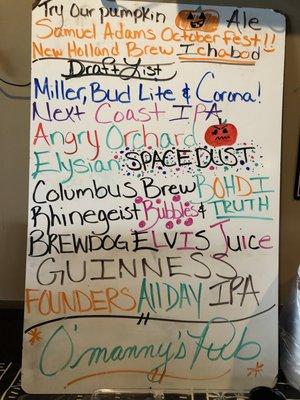 Try Our pumpkin Ale
Samuel Adams October Fest!!
New Holland Brew Ichabod
Draft List
Miller, Bud Lite & Corona!
Next Coast IPA
Angry Orchard
Elysian SPACE DUST
Columbus Brew BOHDI
Rhinegeist Bubbles & TRUTH
BREWDOG ELVIS Juice
GUINNESS
FOUNDERS All DAY IPA
O'manny's Pub